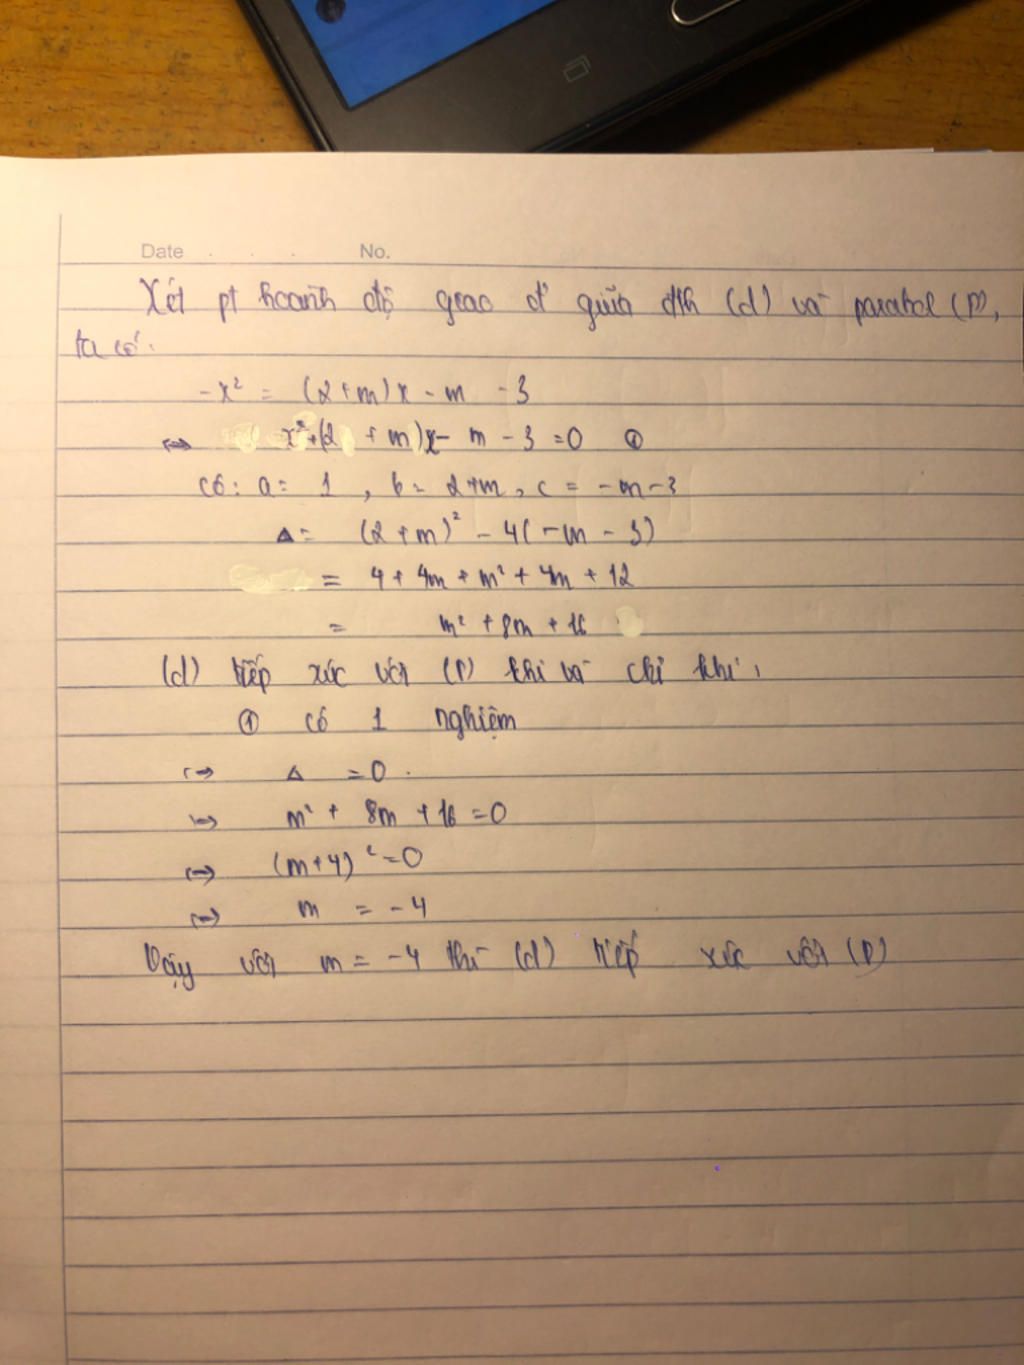 Date . . . No.
Xét pt hoành độ giao đ' giữa đth (d) và parabol (P),
ta có:
-x² = (2+m)x - m - 3
<=> x²+(2 + m)x - m - 3 = 0 ①
Có: a = 1, b = 2+m, c = -m-3
Δ = (2+m)² - 4(-m - 3)
= 4 + 4m + m² + 4m + 12
= m² + 8m + 16
(d) tiếp xúc với (P) khi và chỉ khi:
① có 1 nghiệm
<=> Δ = 0.
<=> m² + 8m + 16 = 0
<=> (m+4)² = 0
<=> m = -4
Vậy với m = -4 thì (d) tiếp xúc với (P)